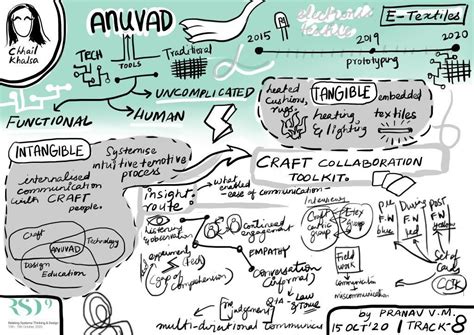 Chhail
Khalsa
ANUVAD
TECH
TOOLS
Traditional
UNCOMPLICATED
FUNCTIONAL
HUMAN
electronic
textiles
E-TEXTILES
2015
2019
2020
prototyping
heated
cushions,
rugs.
TANGIBLE
embedded
heating
& lighting
textiles
INTANGIBLE
Systemise
intuitive/emotive
process
internalised
communication
with CRAFT
people.
Craft
ANUVAD
Technology
Design
Education
CRAFT COLLABORATION
TOOLKIT.
insight
route:
What
enabled ease of communication
listening
& observation
continued
engagement
experiments
(Tech)
(gap of comprehension)
EMPATHY
Conversation
(informal)
multi-directional communication
Interviews
Craft
centric
group
Etex
group
Field
work
Communication
Miscommunication
Pre
F.N
blue
During
F.N
red
Post
F.N
yellow
Set
of
cards
RSD9
Relating Systems Thinking & Design
by PRANAV V.M.
15 OCT'20 TRACK